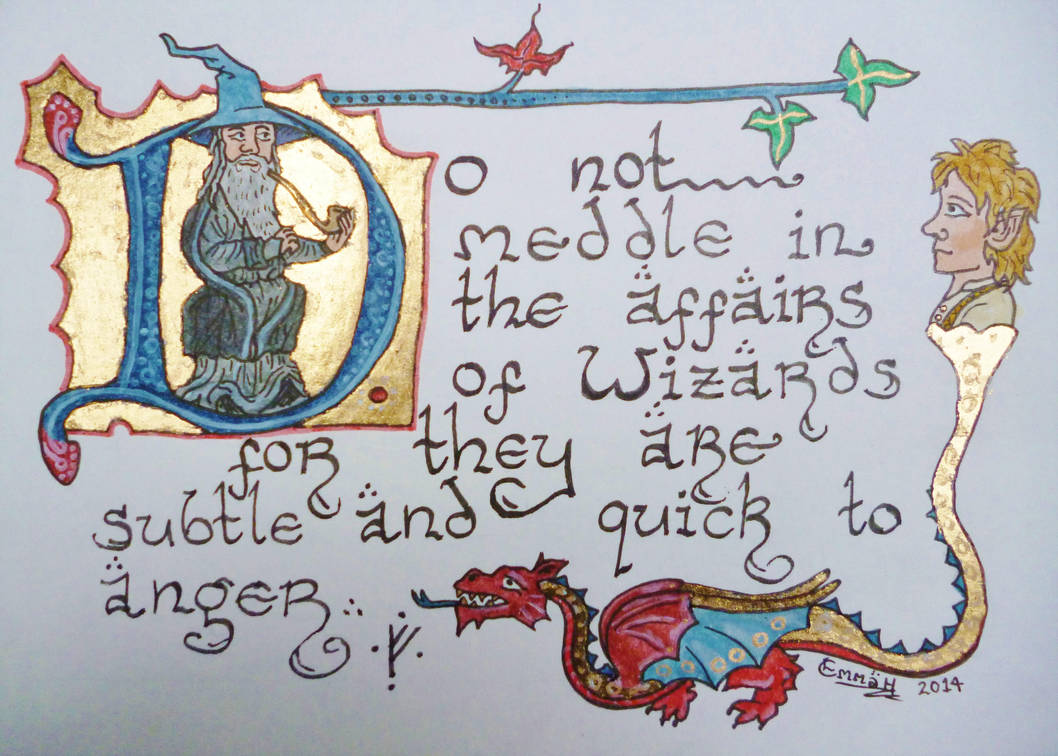 Do not
meddle in
the affairs
of Wizards
for they are
subtle and quick to
anger.
Emma H 2014